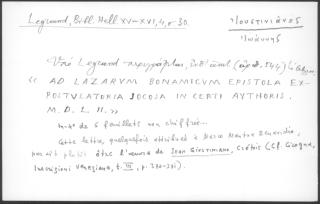 Legrand, Bibl. Hell XV-XVI, 4, σ 30.
Ἰουστινιάνος
Ἰωάννης
Legrand
« AD LAZARUM BONAMICUM EPISTOLA EX-
POSTULATORIA JOCOSA INCERTI AUTHORIS.
M. D. L. II. »
in-4º de 6 feuillets non chiffrés...
Cette lettre, quelquefois attribuée à Marco Mantua Benavides,
paraît plutôt être l'œuvre de Jean Giustiniano, Crétois (Cf. Cicogna,
Inscrizioni Veneziane, t. III, p. 370-371).